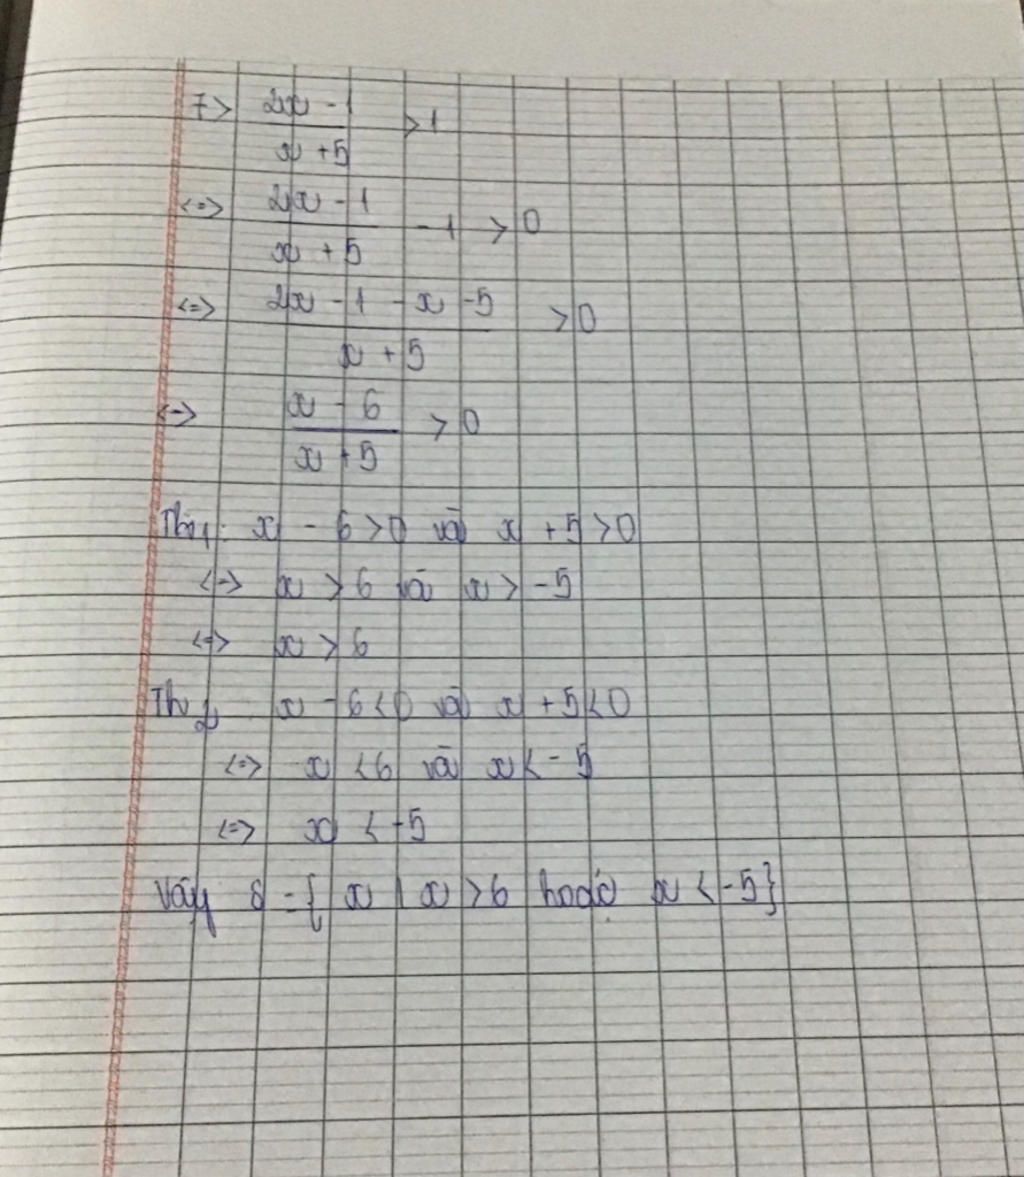 7> (2x - 1)/(x + 5) > 1
<=> (2x - 1)/(x + 5) - 1 > 0
<=> (2x - 1 - x - 5)/(x + 5) > 0
<=> (x - 6)/(x + 5) > 0
Th1: x - 6 > 0 và x + 5 > 0
<=> x > 6 và x > -5
<=> x > 6
Th2 x - 6 < 0 và x + 5 < 0
<=> x < 6 và x < -5
<=> x < -5
Vậy S = { x | x > 6 hoặc x < -5}